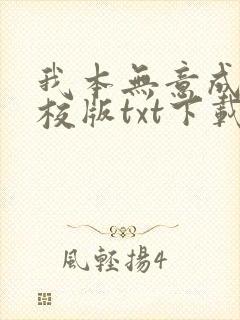 我本無意成
校版txt下載
風輕揚4